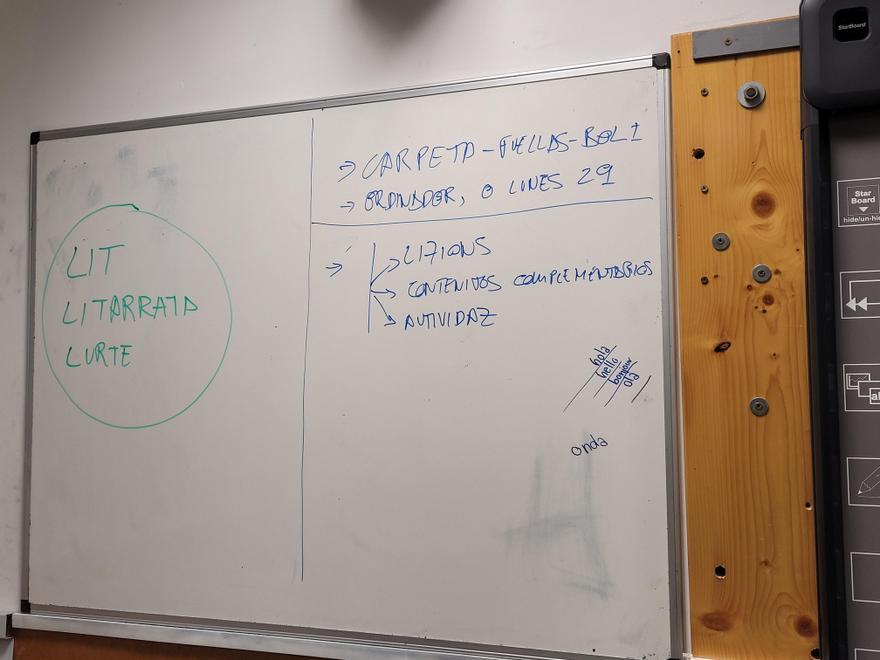 LIT
LITARRATA
LURTE
→ CARPETA - FUELLAS - BOLI
→ ORDINADOR, O LUNES 29
→ LIZIONS
→ CONTENITOS COMPLEMENTARIOS
→ AUTIVIDAZ
hola
hello
bonjour
ola
onda
StarBoard
Star
Board
hide/un-hi